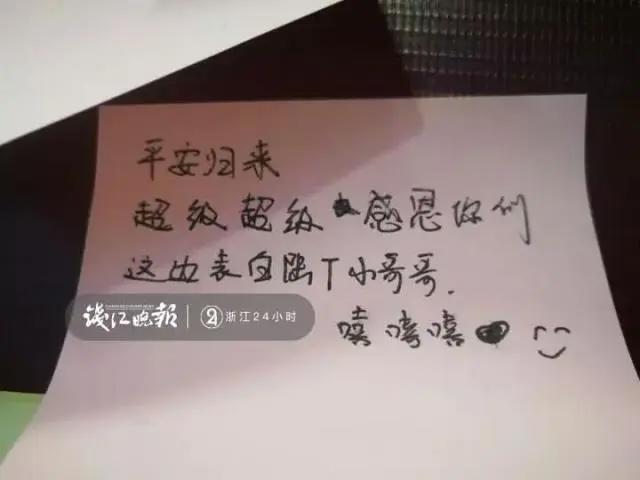 平安归来
超级超级感恩你们
这边表白幽T小哥哥.
嘻嘻嘻
钱江晚报 浙江24小时